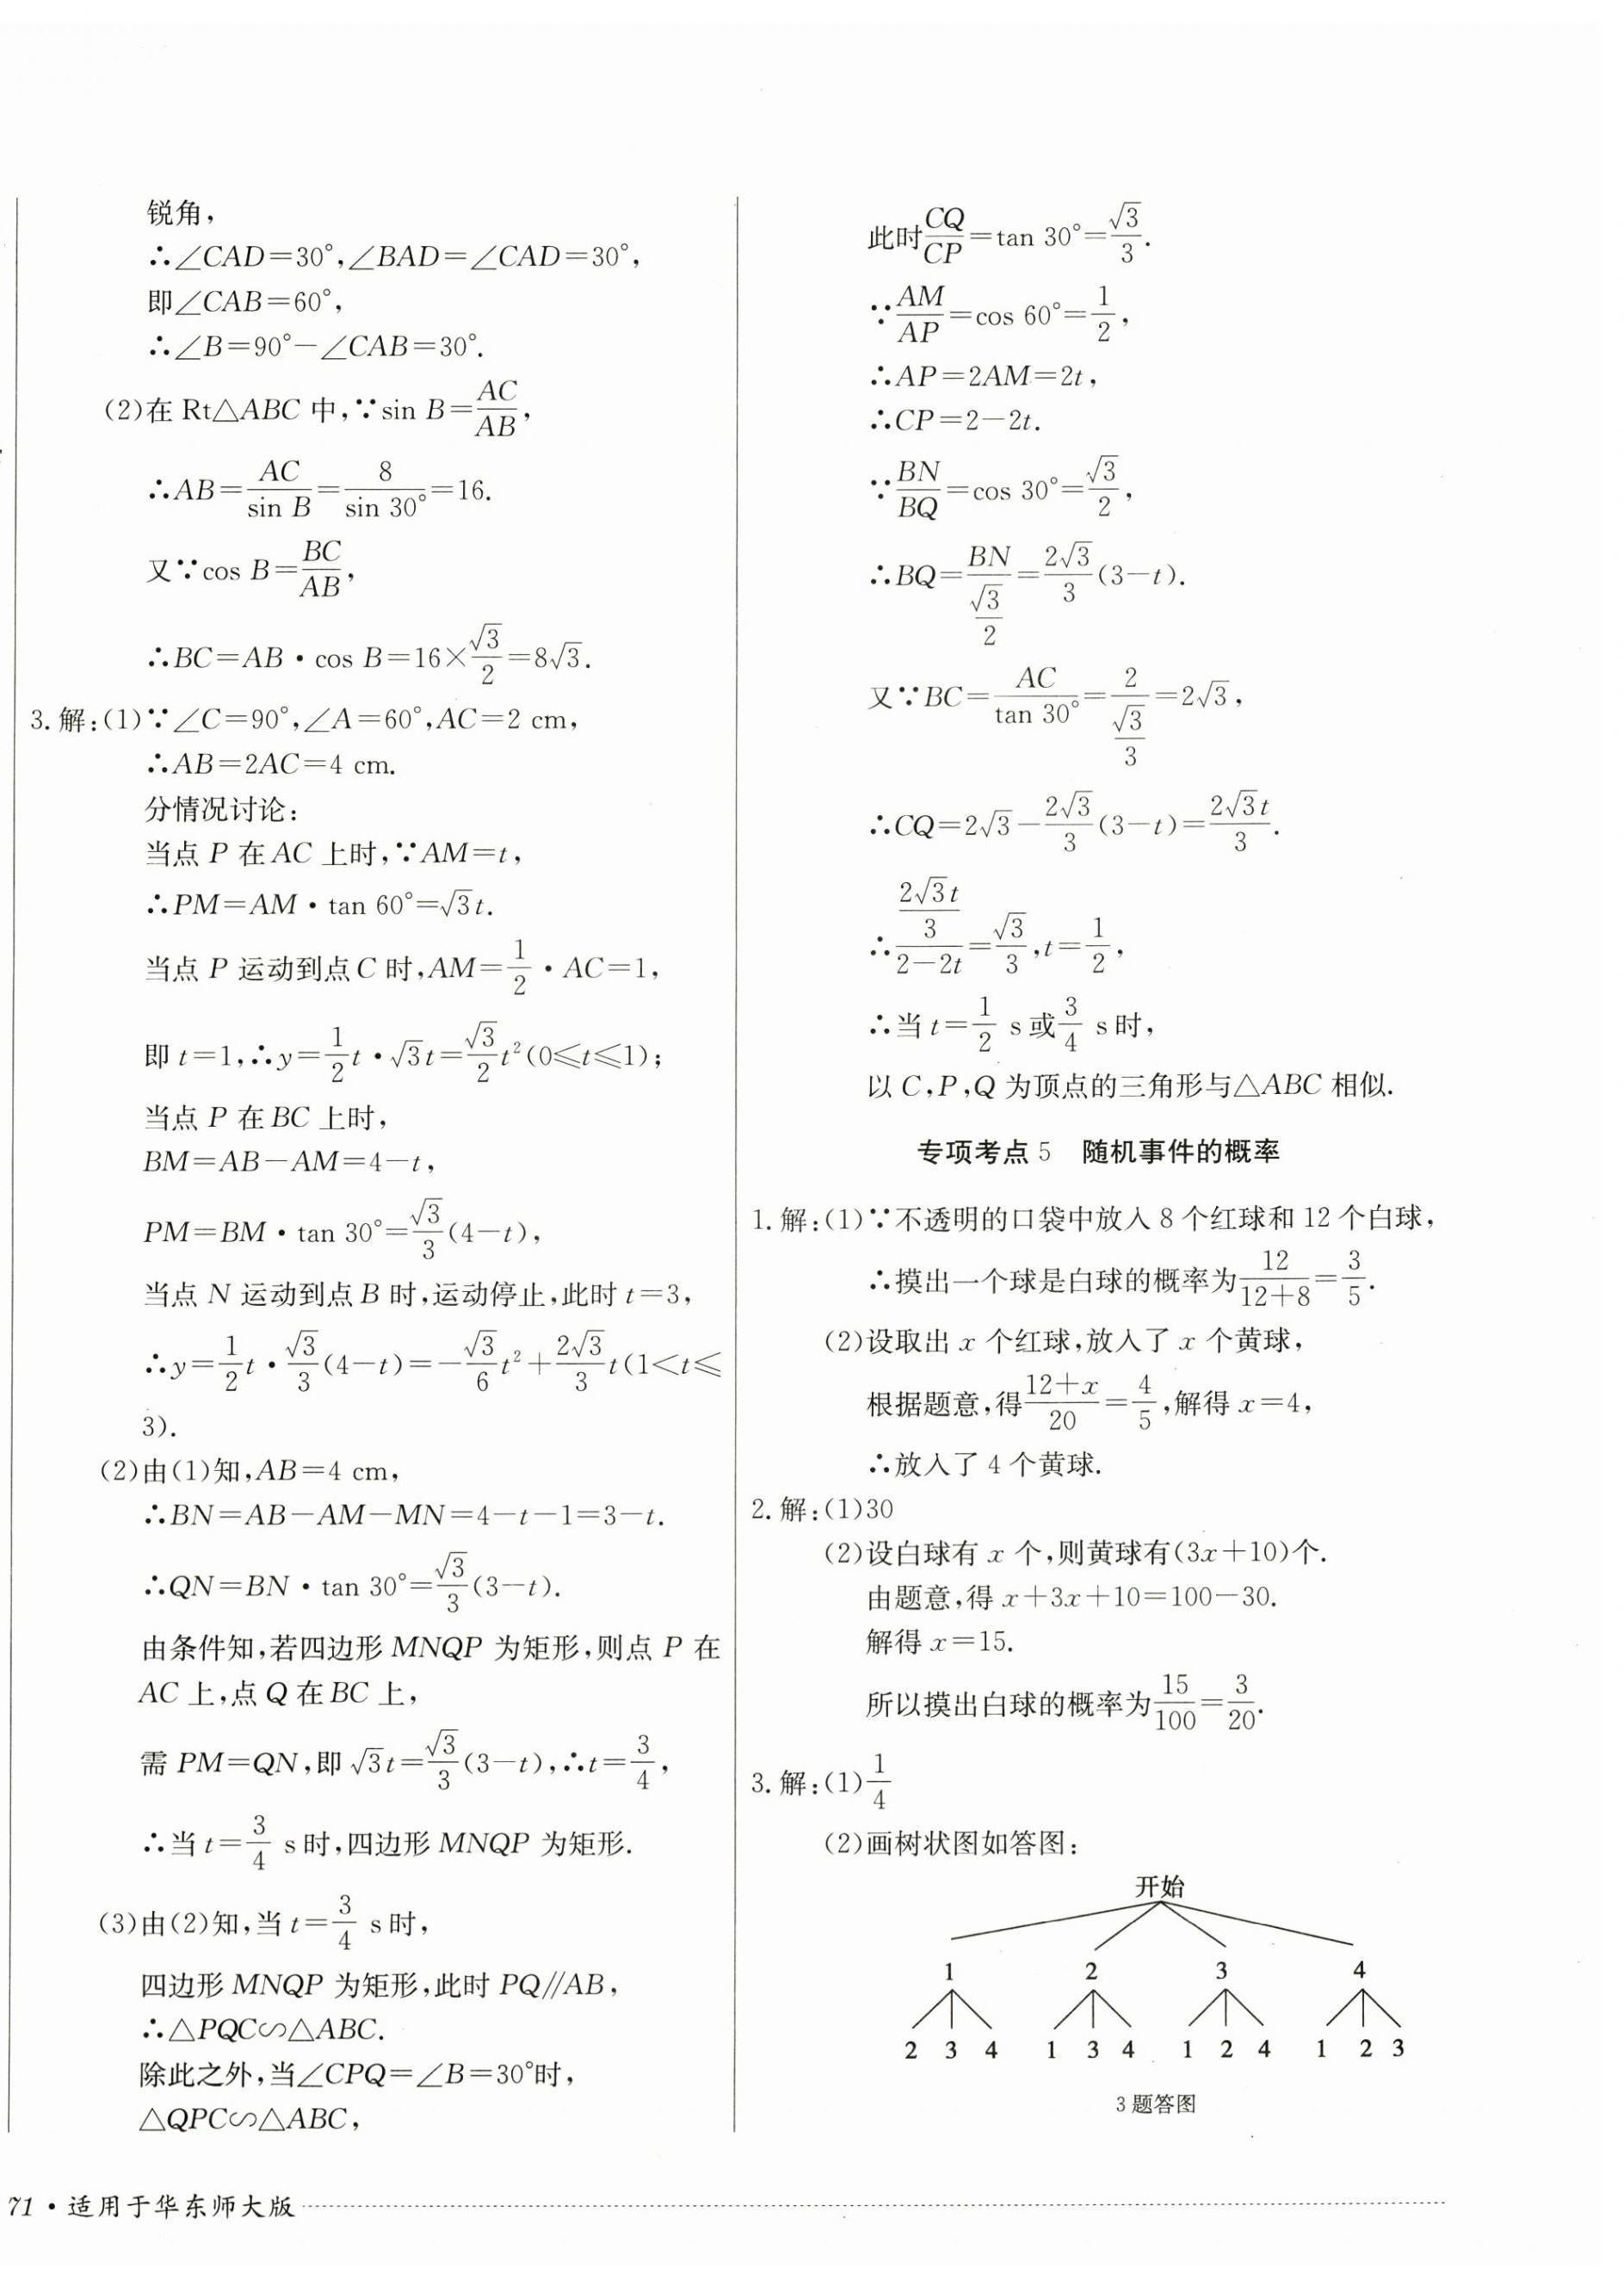 锐角，
∴∠CAD=30°，∠BAD=∠CAD=30°，
即∠CAB=60°，
∴∠B=90°−∠CAB=30°.
(2)在 Rt△ABC 中，∵sin B=AC/AB，
∴AB=AC/sin B=8/sin 30°=16.
又∵cos B=BC/AB，
∴BC=AB·cos B=16×√3/2=8√3.
3.解：(1)∵∠C=90°，∠A=60°，AC=2 cm，
∴AB=2AC=4 cm.
分情况讨论：
当点 P 在 AC 上时，∵AM=t，
∴PM=AM·tan 60°=√3t.
当点 P 运动到点 C 时，AM=1/2·AC=1，
即 t=1，∴y=1/2t·√3t=√3/2t²(0≤t≤1)；
当点 P 在 BC 上时，
BM=AB−AM=4−t，
PM=BM·tan 30°=√3/3(4−t)，
当点 N 运动到点 B 时，运动停止，此时 t=3，
∴y=1/2t·√3/3(4−t)=−√3/6t²+2√3/3t(1<t≤
3).
(2)由(1)知，AB=4 cm，
∴BN=AB−AM−MN=4−t−1=3−t.
∴QN=BN·tan 30°=√3/3(3−t).
由条件知，若四边形 MNQP 为矩形，则点 P 在
AC 上，点 Q 在 BC 上，
需 PM=QN，即 √3t=√3/3(3−t)，∴t=3/4，
∴当 t=3/4 s 时，四边形 MNQP 为矩形.
(3)由(2)知，当 t=3/4 s 时，
四边形 MNQP 为矩形，此时 PQ∥AB，
∴△PQC∽△ABC.
除此之外，当∠CPQ=∠B=30°时，
△QPC∽△ABC，
此时CQ/CP=tan 30°=√3/3.
∵AM/AP=cos 60°=1/2，
∴AP=2AM=2t，
∴CP=2−2t.
∵BN/BQ=cos 30°=√3/2，
∴BQ=BN/(√3/2)=2√3/3(3−t).
又∵BC=AC/tan 30°=2/(√3/3)=2√3，
∴CQ=2√3−2√3/3(3−t)=2√3t/3.
∴(2√3t/3)/(2−2t)=√3/3，t=1/2，
∴当 t=1/2 s 或3/4 s 时，
以 C，P，Q 为顶点的三角形与△ABC 相似.
专项考点 5 随机事件的概率
1.解：(1)∵不透明的口袋中放入 8 个红球和 12 个白球，
∴摸出一个球是白球的概率为12/(12+8)=3/5.
(2)设取出 x 个红球，放入了 x 个黄球，
根据题意，得(12+x)/20=4/5，解得 x=4，
∴放入了 4 个黄球.
2.解：(1)30
(2)设白球有 x 个，则黄球有(3x+10)个.
由题意，得 x+3x+10=100−30.
解得 x=15.
所以摸出白球的概率为15/100=3/20.
3.解：(1)1/4
(2)画树状图如答图：
开始
1 2 3 4
2 3 4 1 3 4 1 2 4 1 2 3
3题答图
71·适用于华东师大版